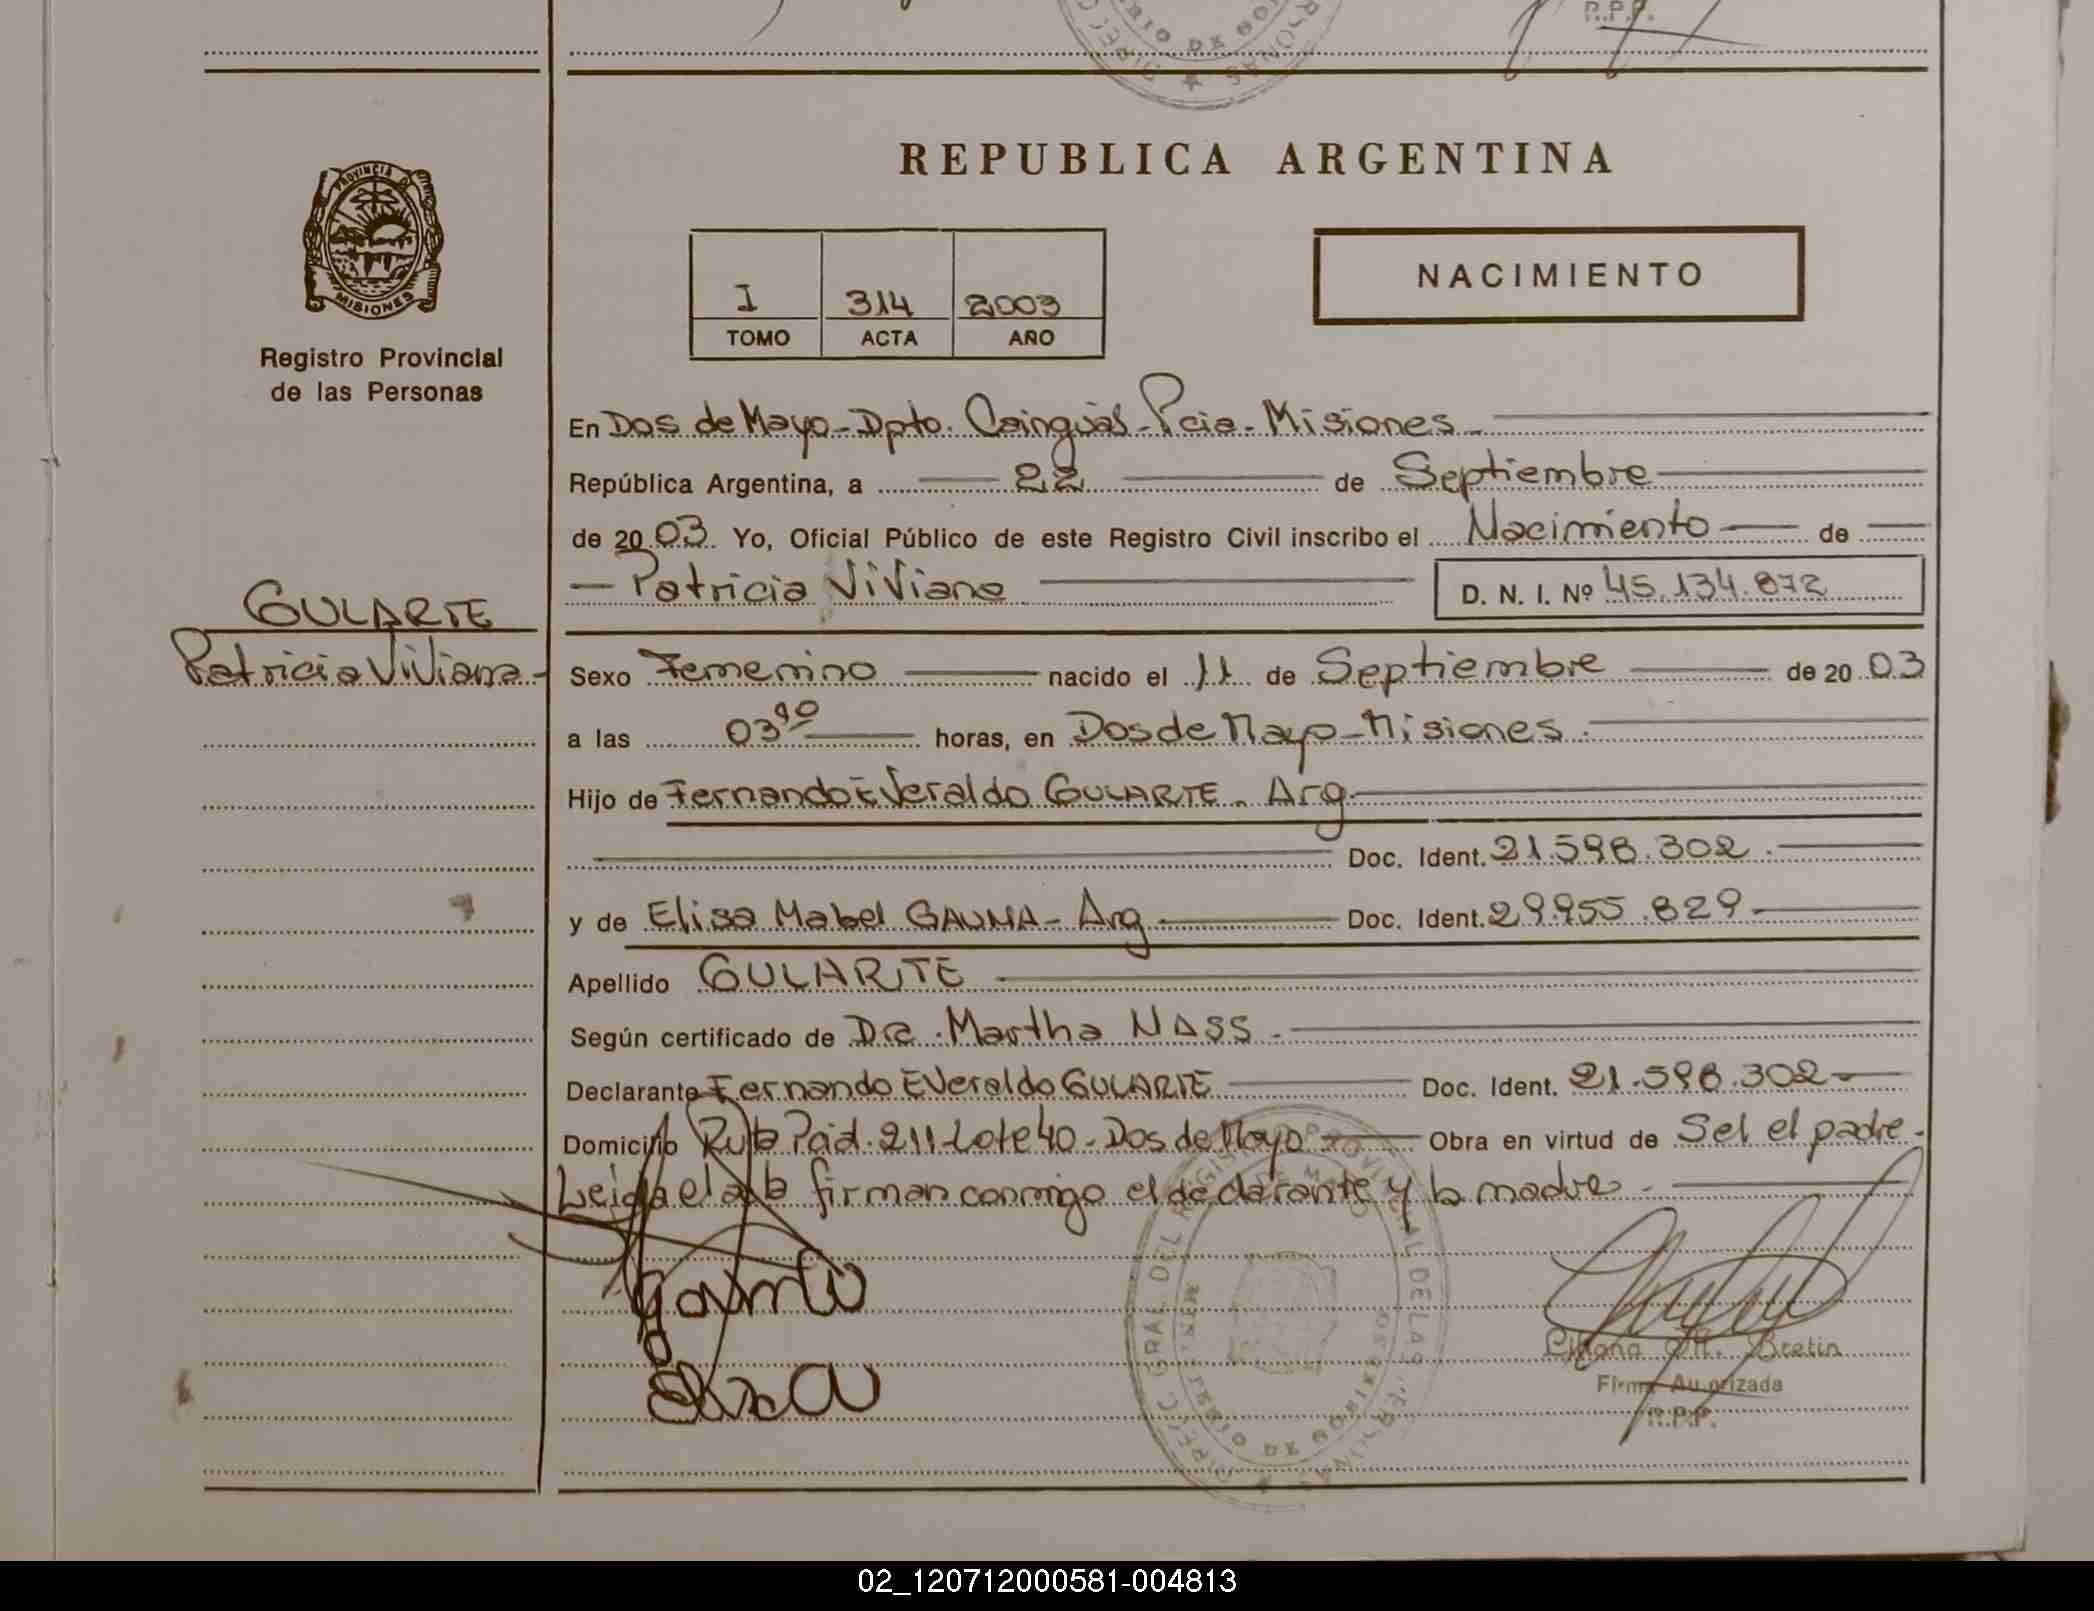 R.P.P.
REPUBLICA ARGENTINA
PROVINCIA
MISIONES
Registro Provincial
de las Personas
I 314 2003
TOMO ACTA AÑO
NACIMIENTO
En Dos de Mayo - Dpto. Cainguás - Pcia - Misiones
República Argentina, a 22 de Septiembre
de 2003 Yo, Oficial Público de este Registro Civil inscribo el Nacimiento de
Patricia Viviana D. N. I. Nº 45.134.872
GULARTE
Patricia Viviana -
Sexo Femenino nacido el 11 de Septiembre de 2003
a las 03 40 horas, en Dos de Mayo - Misiones
Hijo de Fernando Everaldo GULARTE - Arg
Doc. Ident. 21.598.302
y de Elisa Mabel GAUNA - Arg Doc. Ident. 29.955.829
Apellido GULARTE
Según certificado de Dra. Martha NASS
Declarante Fernando Everaldo GULARTE Doc. Ident. 21.598.302
Domicilio Ruta Pcial. 211 Lote 40 - Dos de Mayo Obra en virtud de Sel el padre -
Leida el acta firman conmigo el declarante y la madre
Gauna
Elisa
Bretin
Firma Autorizada
R.P.P.
02_120712000581-004813